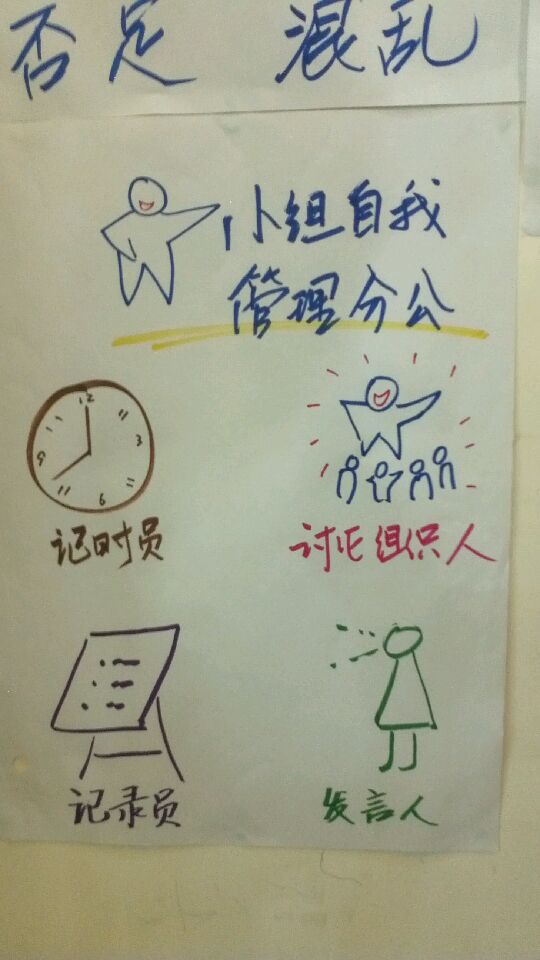 否定 混乱
小组自我
管理分公
12
9 3
6
记时员
讨论组织人
记录员
发言人